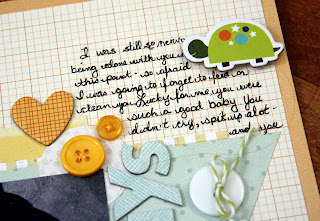 I was still so nervous
being alone with you at
this point - so afraid
I was going to forget to feed or
clean you. Lucky for me you were
such a good baby. You
didn't cry, spit up alot -
and you
SKY